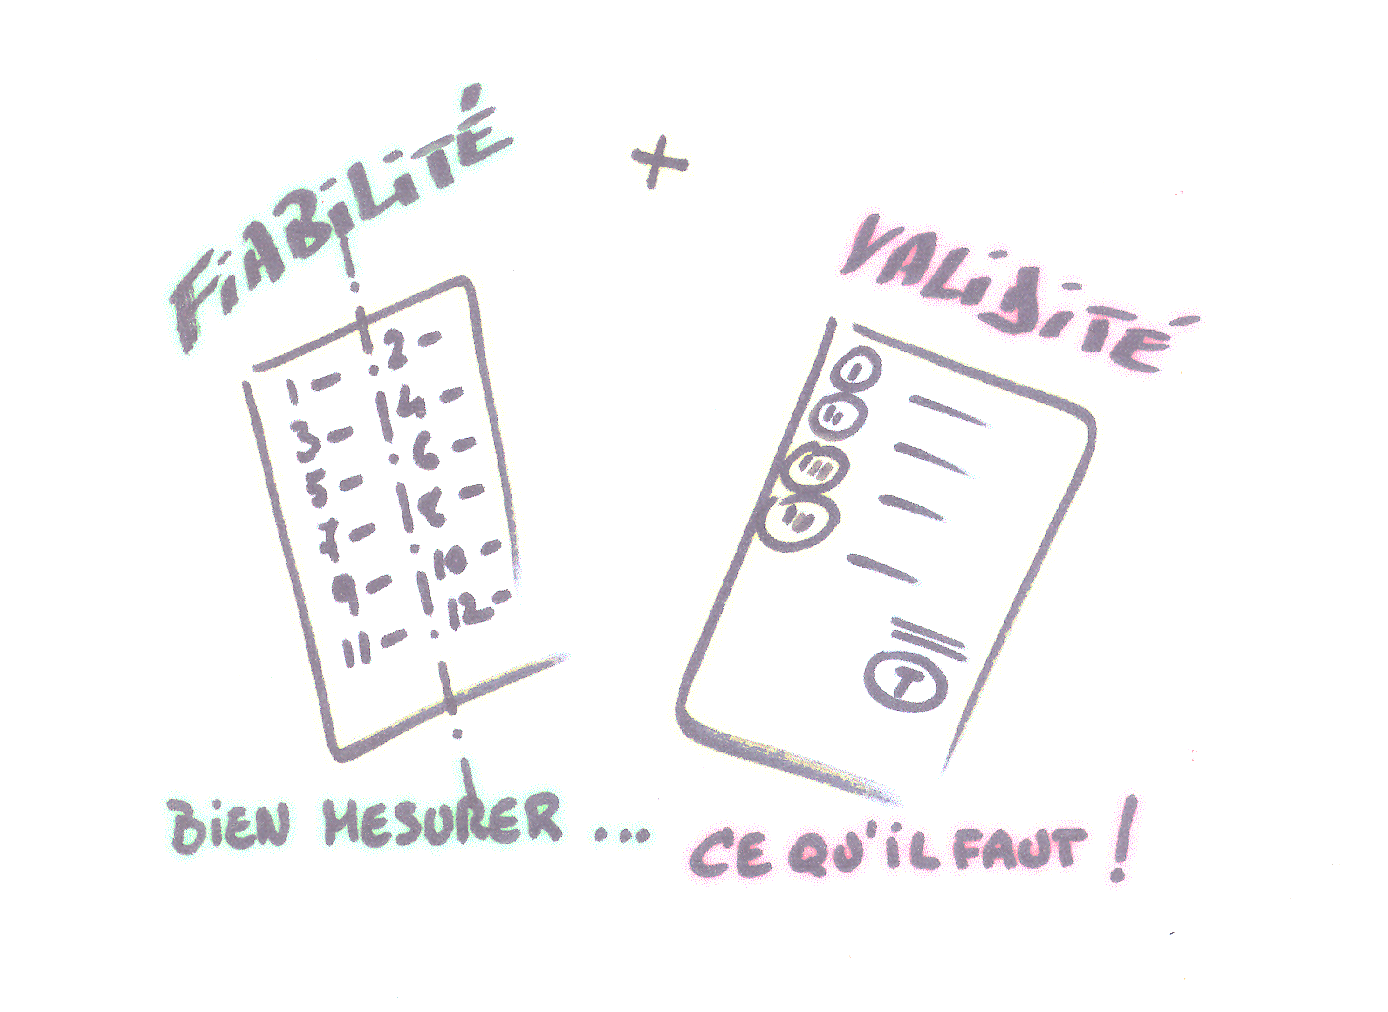 FiABiLiTÉ
+
VALiDiTÉ
1 - 2 -
3 - 4 -
5 - 6 -
7 - 8 -
9 - 10 -
11 - 12 -
I
II
III
IV
T
BiEN MESURER ...
CE QU'iL FAUT !